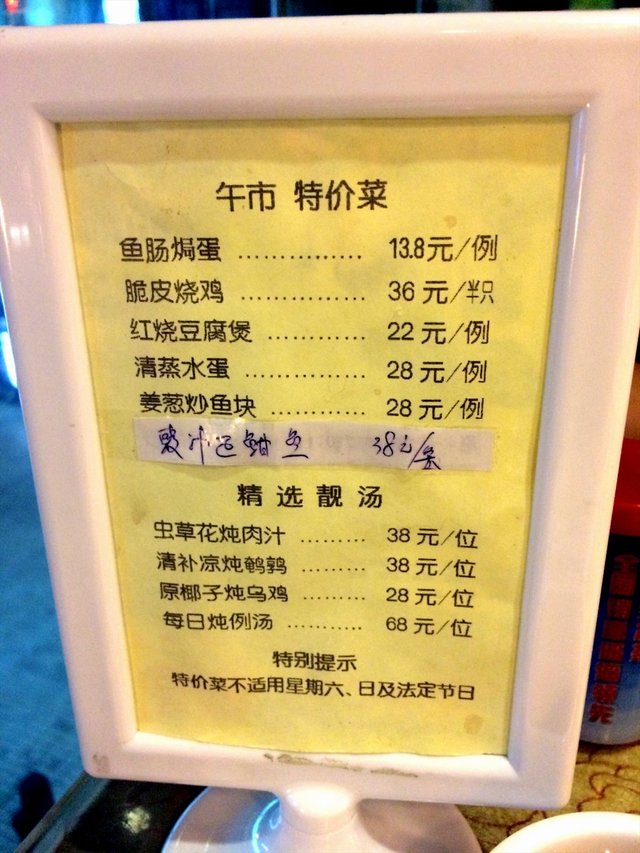 午市 特价菜
鱼肠焗蛋 ............... 13.8元/例
脆皮烧鸡 ............... 36 元/半只
红烧豆腐煲 ............ 22 元/例
清蒸水蛋 ............... 28 元/例
姜葱炒鱼块 ............ 28 元/例
豉汁 鱼 38元/条
精选靓汤
虫草花炖肉汁 ......... 38 元/位
清补凉炖鹌鹑 ......... 38 元/位
原椰子炖乌鸡 ......... 28 元/位
每日炖例汤 ........... 68 元/位
特别提示
特价菜不适用星期六、日及法定节日